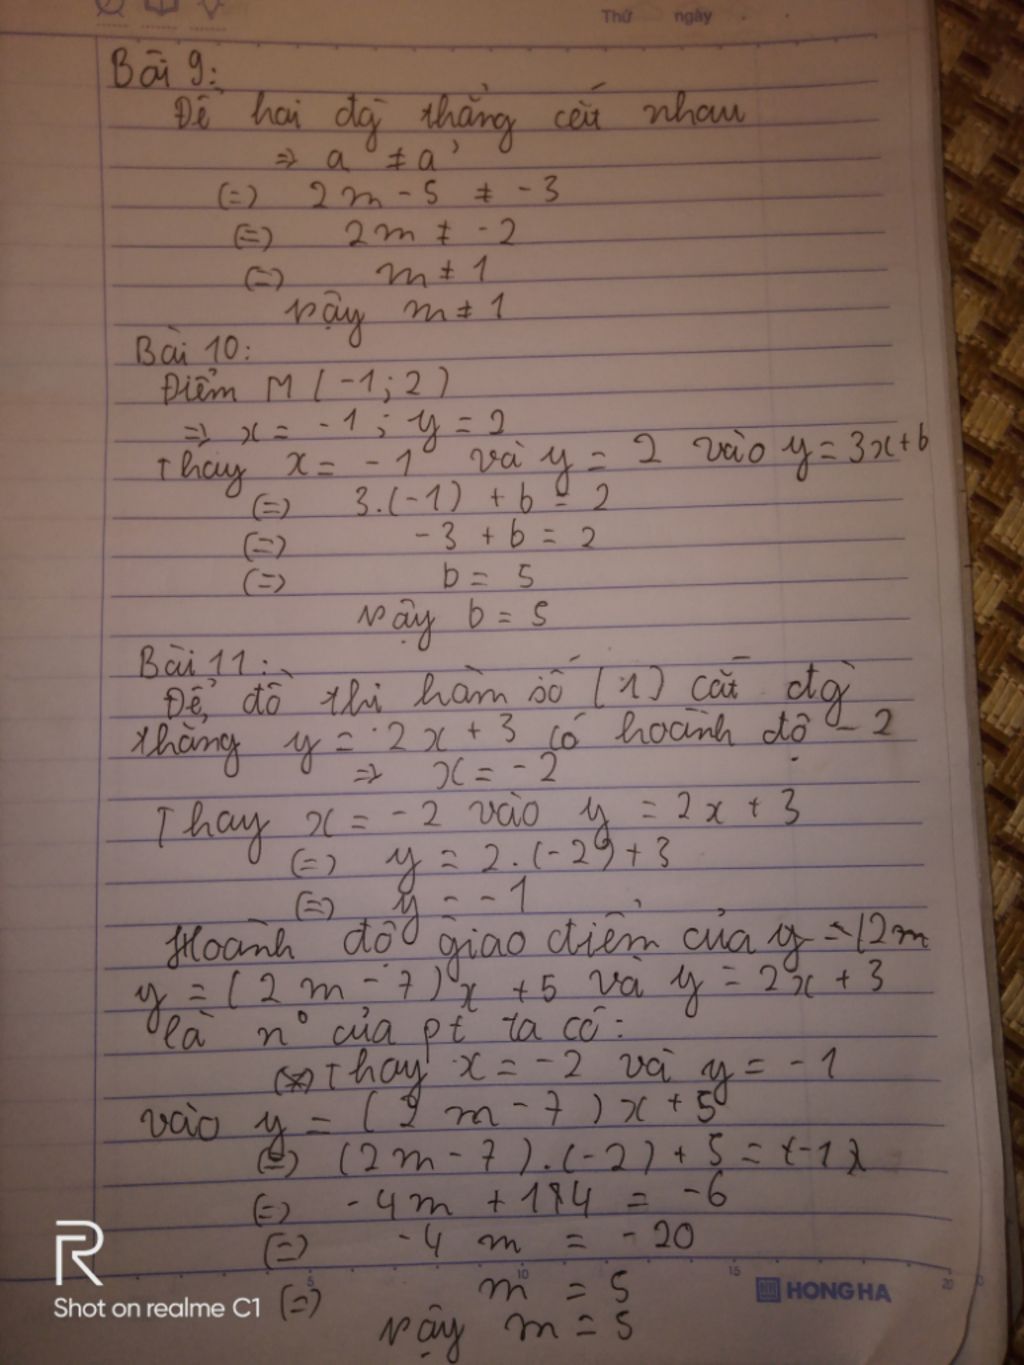 Thứ ngày
Bài 9:
Để hai đg thẳng cắt nhau
=> a ≠ a'
(=) 2m - 5 ≠ -3
(=) 2m ≠ -2
(=) m ≠ 1
Vậy m ≠ 1
Bài 10:
Điểm M (-1; 2)
=> x = -1; y = 2
Thay x = -1 và y = 2 vào y = 3x + b
(=) 3.(-1) + b = 2
(=) -3 + b = 2
(=) b = 5
Vậy b = 5
Bài 11:
Để đồ thị hàm số (1) cắt đg
thẳng y = 2x + 3 có hoành độ -2
=> x = -2
Thay x = -2 vào y = 2x + 3
(=) y = 2.(-2) + 3
(=) y = -1
Hoành độ giao điểm của y = (2m
y = (2m - 7)x + 5 và y = 2x + 3
là n° của pt ta có:
(*) Thay x = -2 và y = -1
vào y = (2m - 7)x + 5
(=) (2m - 7).(-2) + 5 = (-1)
(=) -4m + 14 = -6
(=) -4m = -20
(=) m = 5
Vậy m = 5
5 10 15 20
HONG HA
R
Shot on realme C1